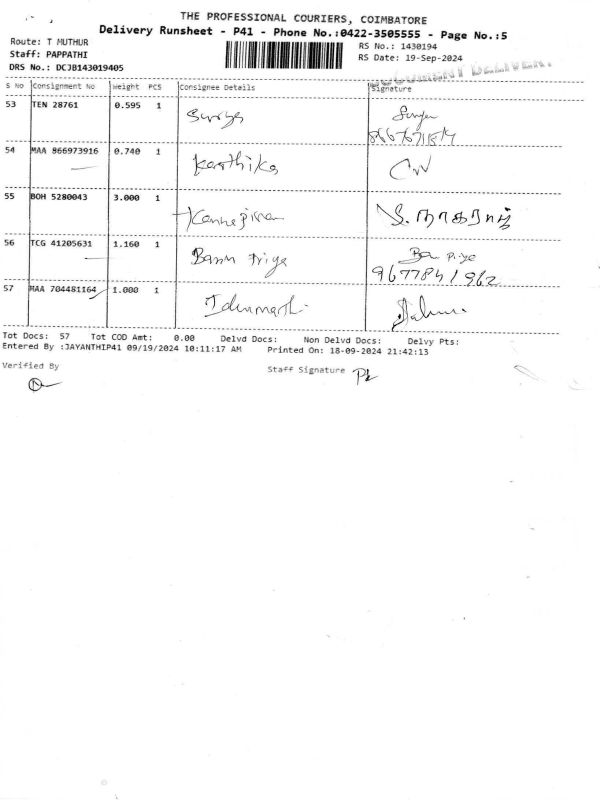 THE PROFESSIONAL COURIERS, COIMBATORE
Delivery Runsheet - P41 - Phone No.:0422-3505555 - Page No.:5
Route: T MUTHUR
RS No.: 1430194
Staff: PAPPATHI
RS Date: 19-Sep-2024
DRS No.: DCJB143019405
S No Consignment No Weight PCS Consignee Details Signature
53 TEN 28761 0.595 1 Surya Surya
54 MAA 866973916 0.740 1 Karthika
55 BOH 5280043 3.000 1 Kannapiran S. நாகராஜ்
56 TCG 41205631 1.160 1 Banu Priya Banu Priya
9677841962
57 MAA 704481164 1.000 1
Tot Docs: 57 Tot COD Amt: 0.00 Delvd Docs: Non Delvd Docs: Delvy Pts:
Entered By :JAYANTHIP41 09/19/2024 10:11:17 AM Printed On: 18-09-2024 21:42:13
Verified By
Staff Signature